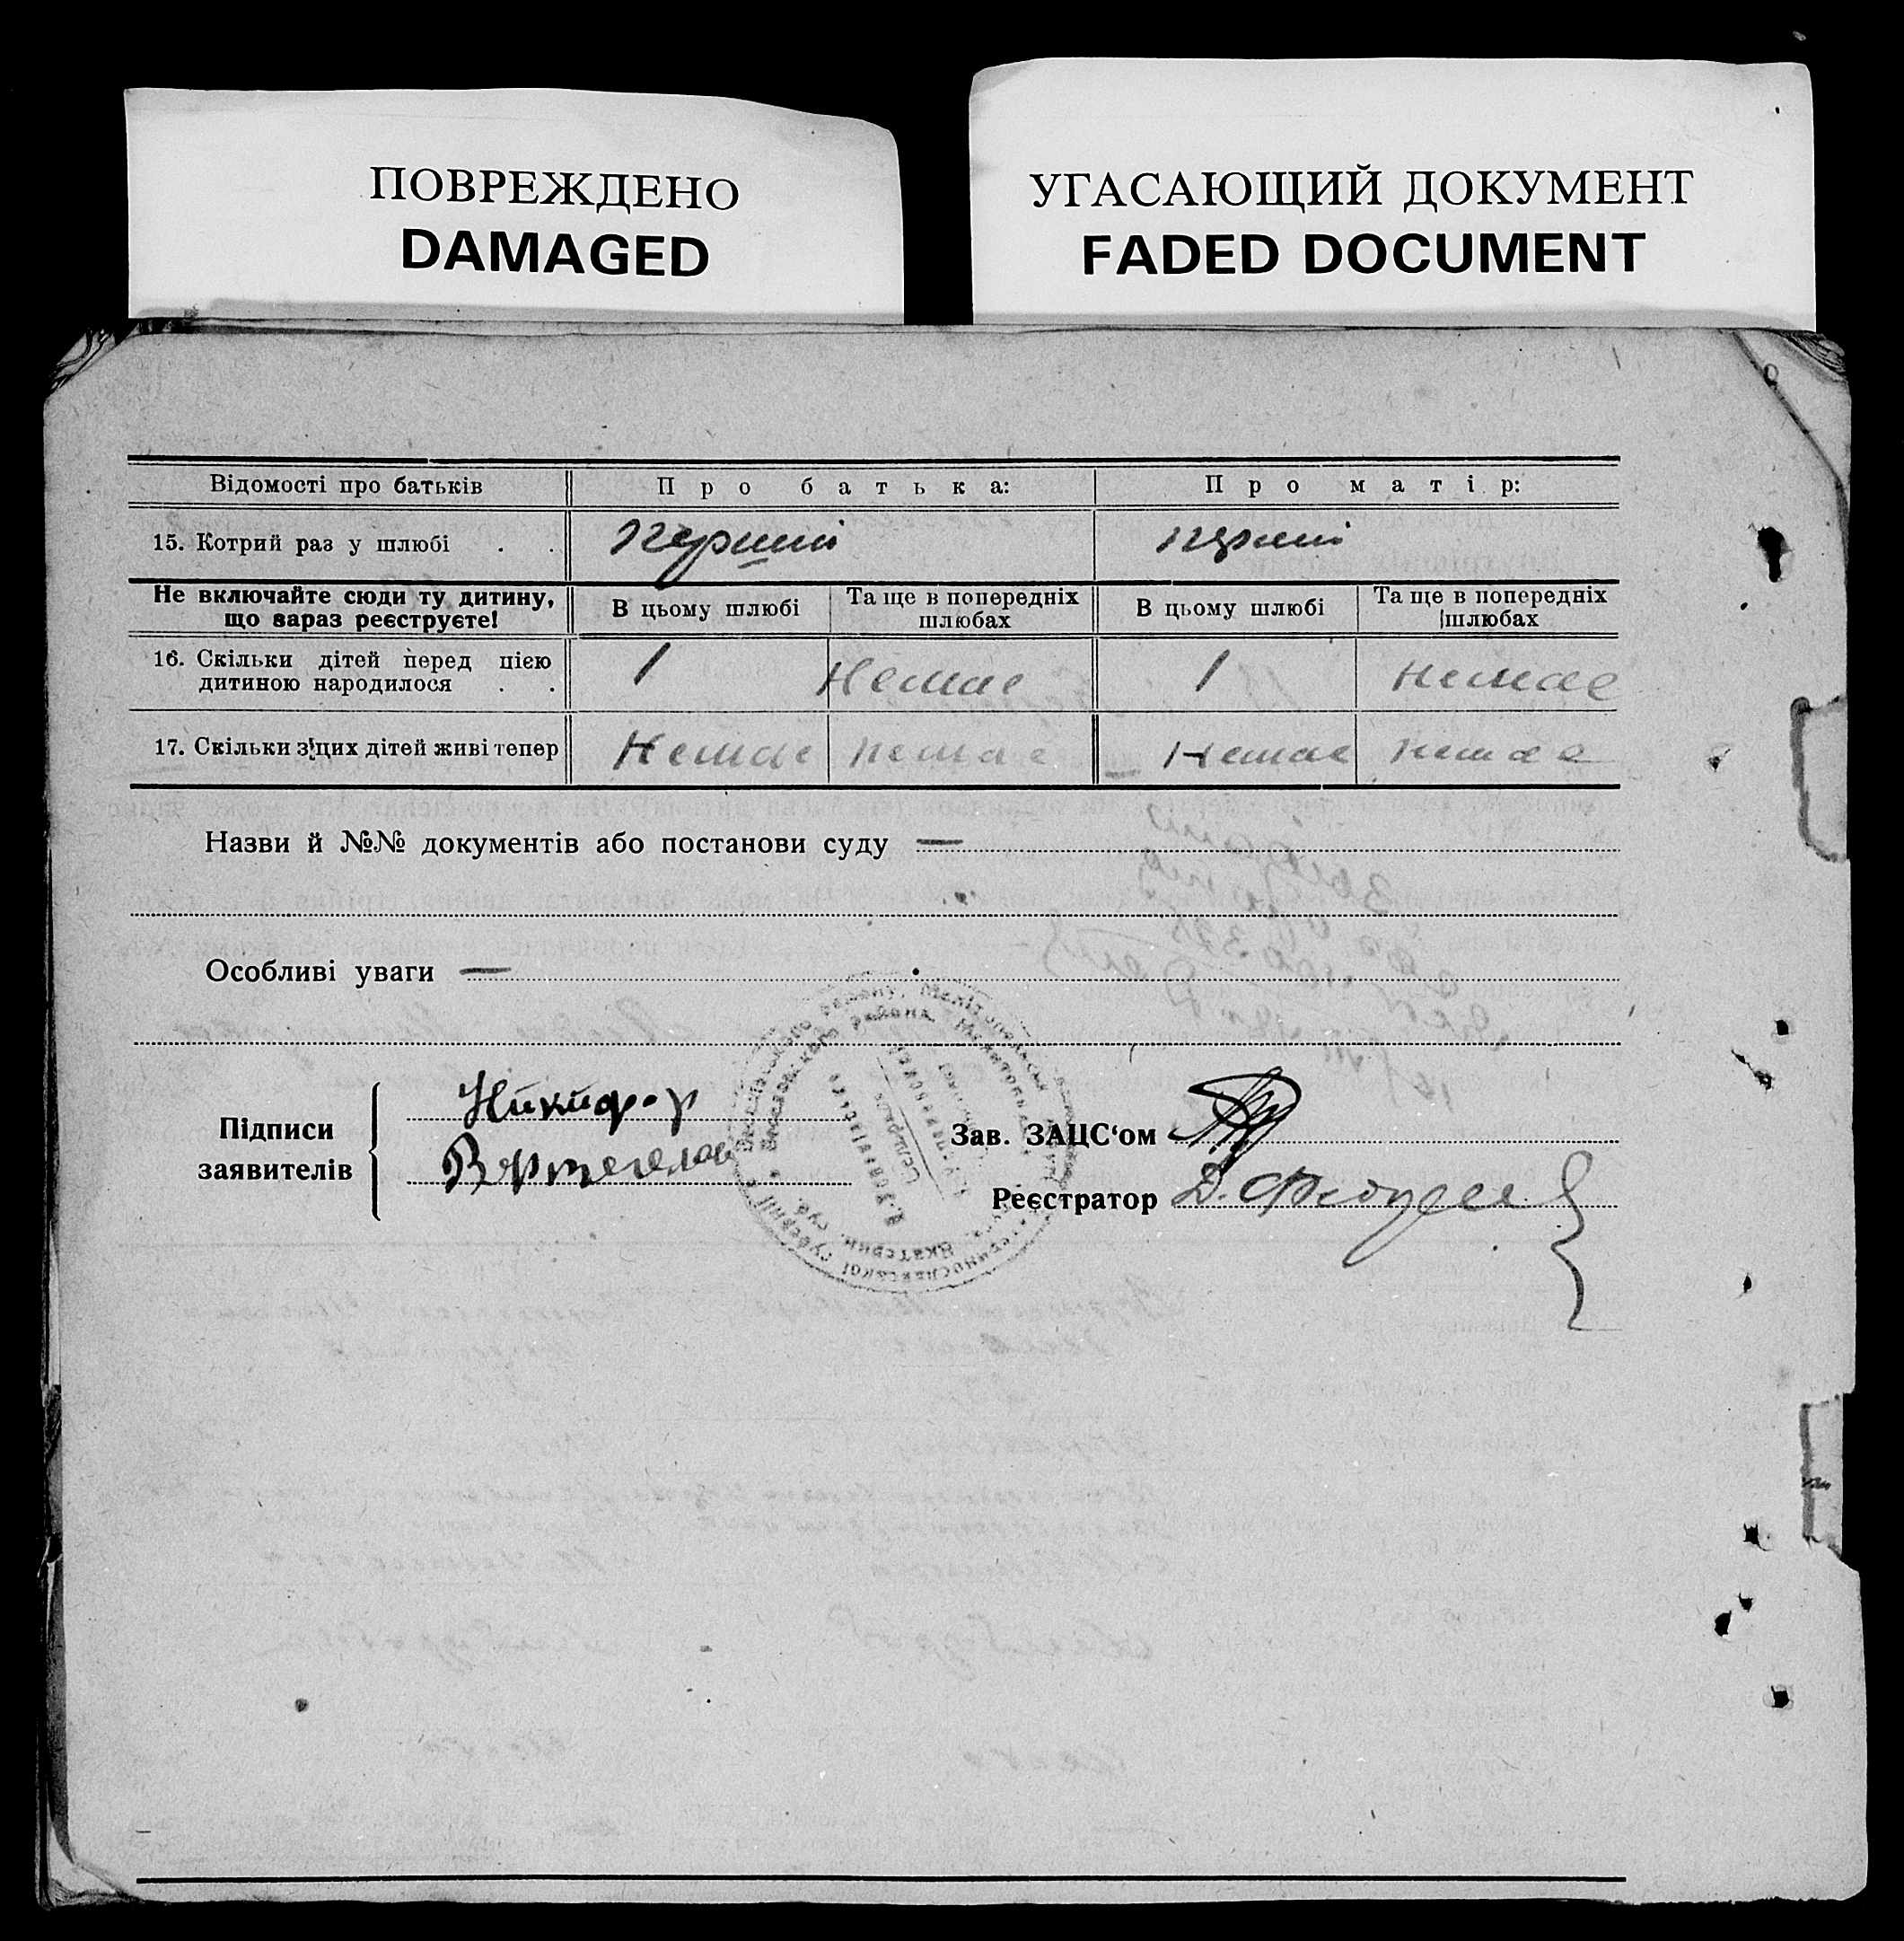 ПОВРЕЖДЕНО
DAMAGED
УГАСАЮЩИЙ ДОКУМЕНТ
FADED DOCUMENT
Відомості про батьків Про батька: Про матір:
15. Котрий раз у шлюбі . . перший перший
Не включайте сюди ту дитину, що зараз реєструєте! В цьому шлюбі Та ще в попередніх шлюбах В цьому шлюбі Та ще в попередніх шлюбах
16. Скільки дітей перед цією 1 Немає 1 немає
дитиною народилося . .
17. Скільки з цих дітей живі тепер Немає немає Немає немає
Назви й №№ документів або постанови суду —
Особливі уваги —
Підписи заявителів
Никифор
Зав. ЗАЦС‘ом
Реєстратор Д.